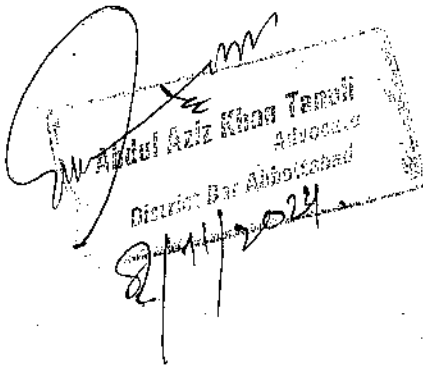 Abdul Aziz Khan Tanoli
Advocate
District Bar Abbottabad
8/11/2024